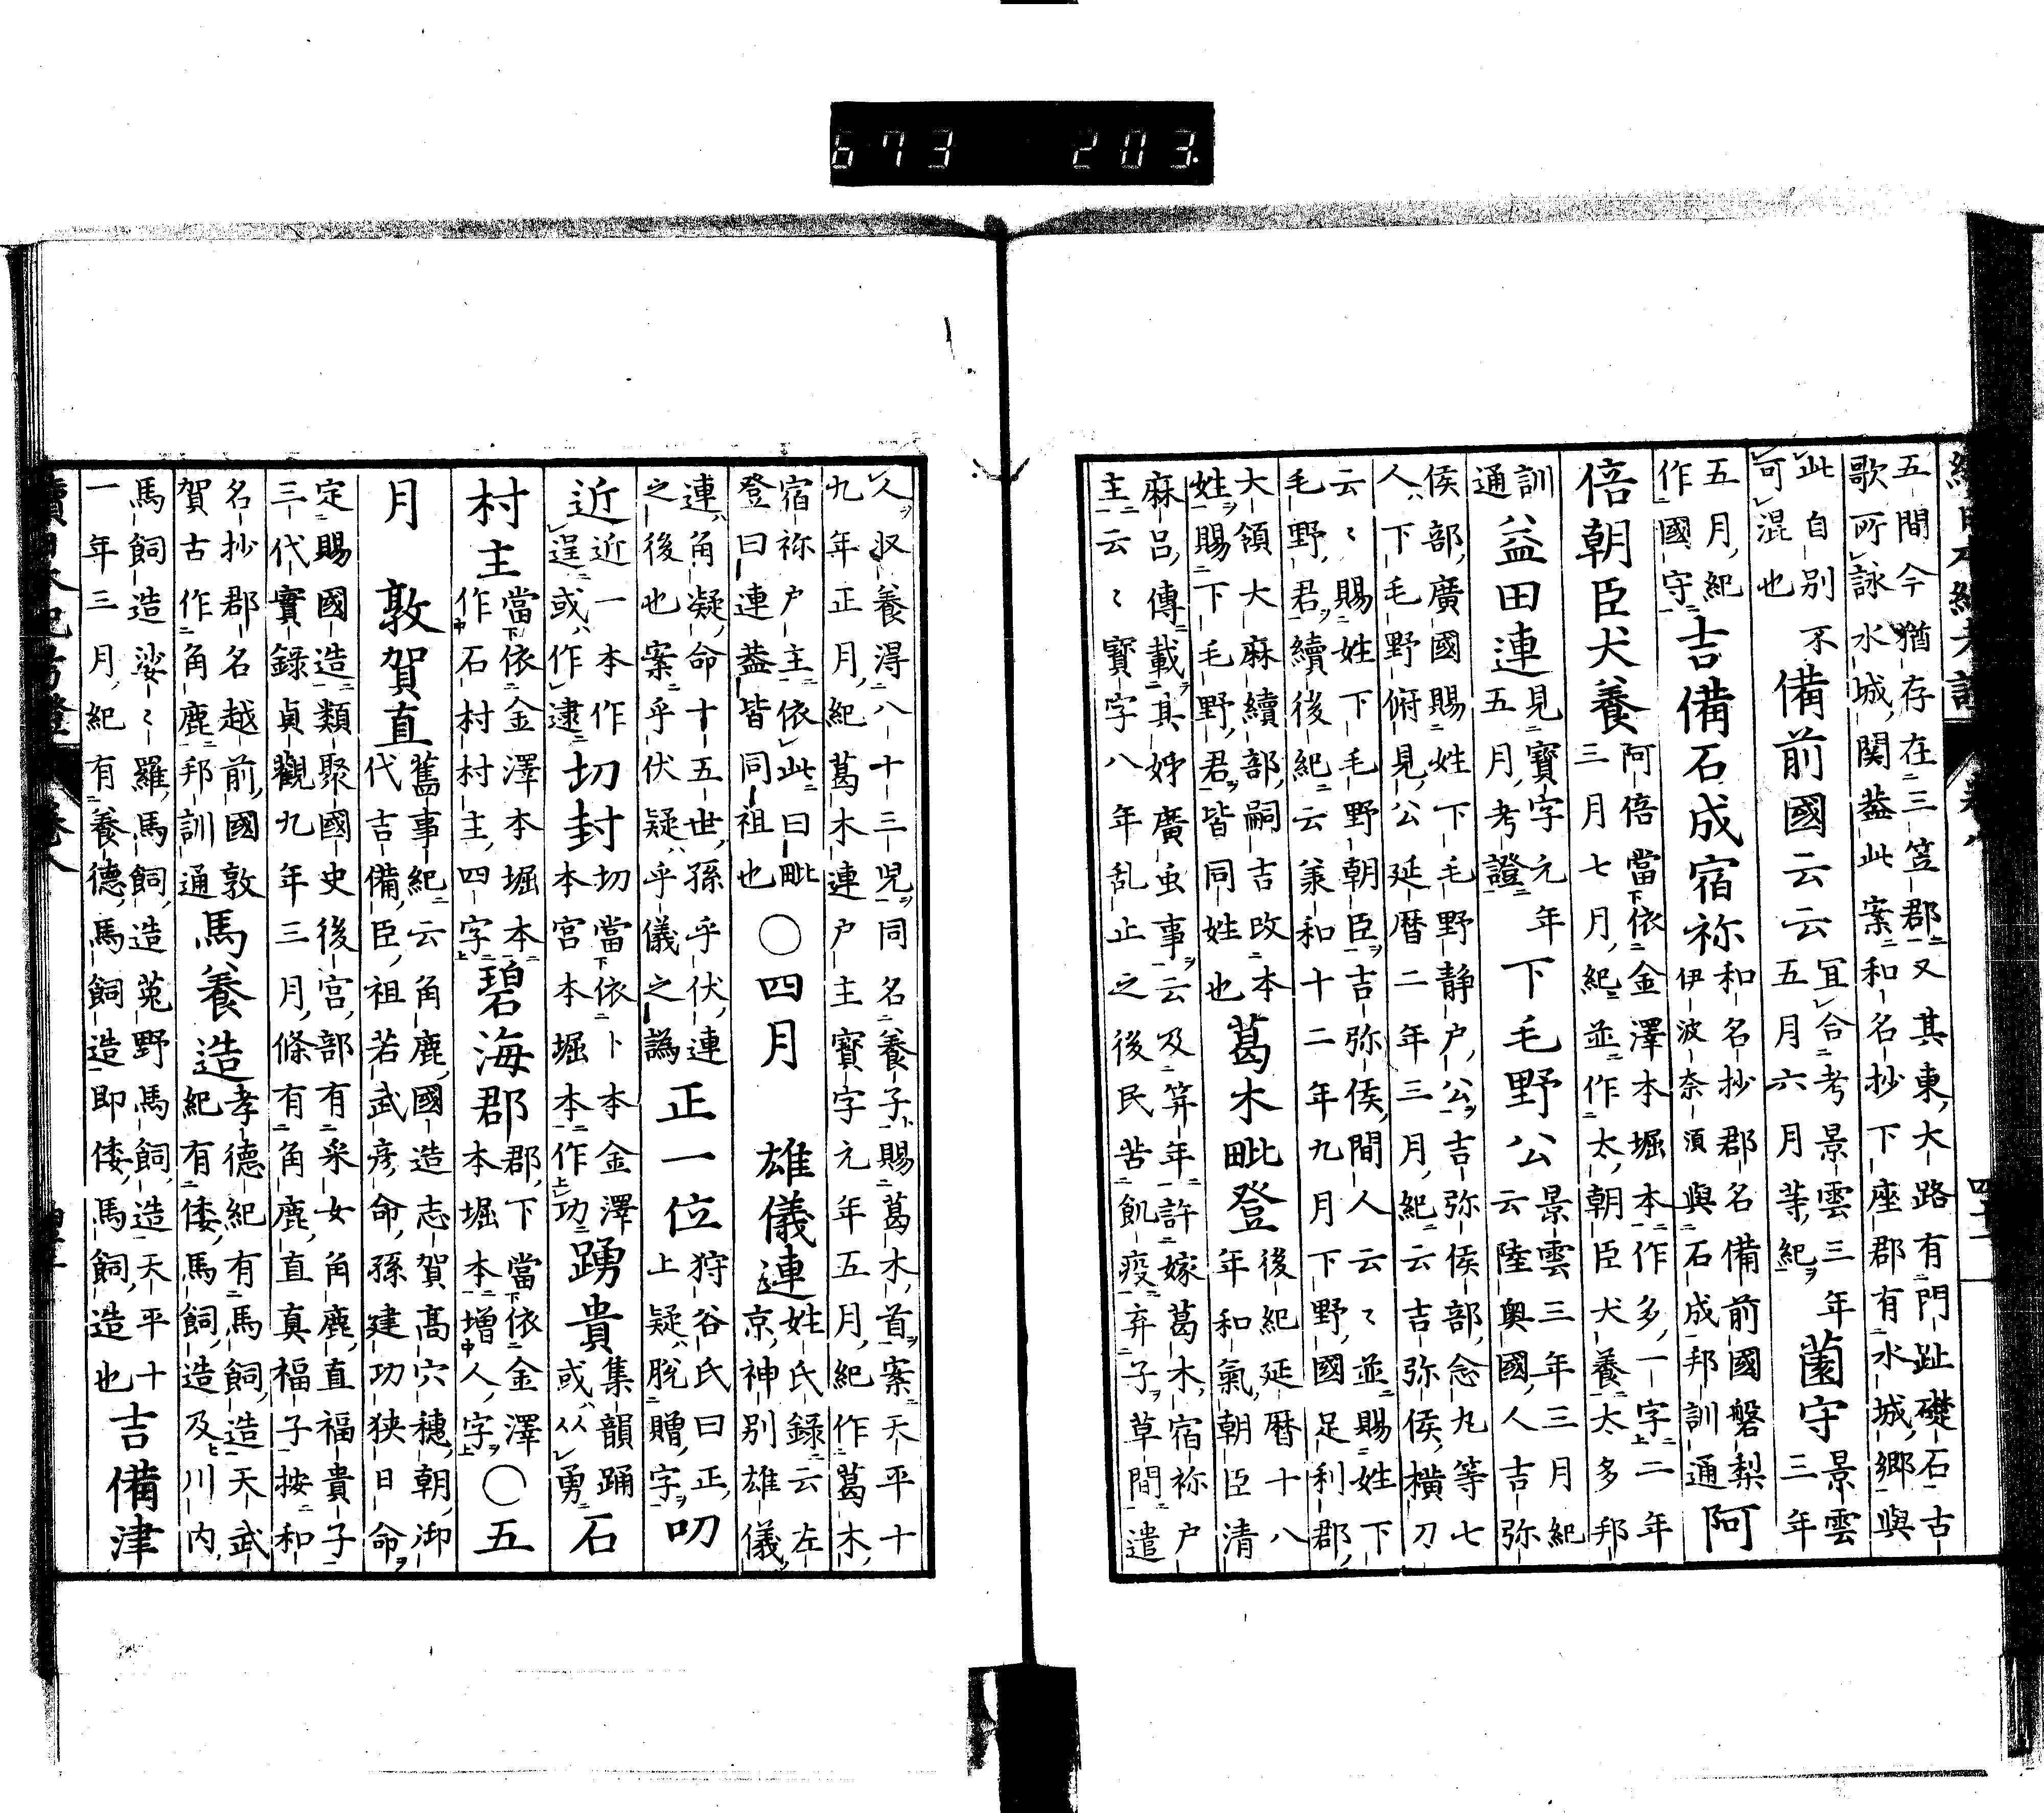 五間今猶存在三笠郡又其東大路有門趾礎石古
歌所詠水城関蓋此案和名抄下座郡有水城郷與
此自別不
可混也
備前國云云
宜合考景雲三年
五月六月等紀
薗守
景雲
三年
五月紀
作國守
吉備石成宿祢
和名抄郡名備前國磐梨
伊波奈須與石成邦訓通
阿
倍朝臣犬養
阿倍當依金澤本堀本作多一字二年
三月七月紀並作太朝臣犬養太多邦
訓
通
益田連
見寶字元年
五月考證
下毛野公
景雲三年三月紀
云陸奥國人吉弥
侯部廣國賜姓下毛野静戸公吉弥侯部念丸等七
人下毛野俯見公延暦二年三月紀云吉弥侯横刀
云〻賜姓下毛野朝臣吉弥侯間人云〻並賜姓下
毛野君續後紀云兼和十二年九月下野國足利郡
大領大麻續部嗣吉改本
姓賜下毛野君皆同姓也
葛木毗登
後紀延暦十八
年和氣朝臣清
麻呂傳載其姊廣虫事云及笄年許嫁葛木宿祢戸
主云〻寶字八年乱止之後民苦飢疫弃子草間遣
人収養得八十三児同名養子賜葛木首案天平十
九年正月紀葛木連戸主寶字元年五月紀作葛木
宿祢戸主依此曰毗
登曰連蓋皆同祖也
〇四月　雄儀連
姓氏録云左
京神別雄儀
連角凝命十五世孫乎伏連
之後也案乎伏疑乎儀之譌
正一位
狩谷氏曰正
上疑脱贈字
叨
近
近一本作
逞或作逮
切封
切當依卜本金澤
本宮本堀本作功
踴貴
集韻踊
或从勇
石
村主
當依金澤本堀本
作石村村主四字
碧海郡
郡下當依金澤
本堀本増人字
〇五
月　敦賀直
舊事紀云角鹿國造志賀髙穴穗朝御
代吉備臣祖若武彦命孫建功狭日命
定賜國造類聚國史後宮部有采女角鹿直福貴子
三代實錄貞觀九年三月條有角鹿直真福子按和
名抄郡名越前國敦
賀古作角鹿邦訓通
馬養造
孝德紀有馬飼造天武
紀有倭馬飼造及川内
馬飼造娑〻羅馬飼造菟野馬飼造天平十
一年三月紀有養德馬飼造即倭馬飼造也
吉備津